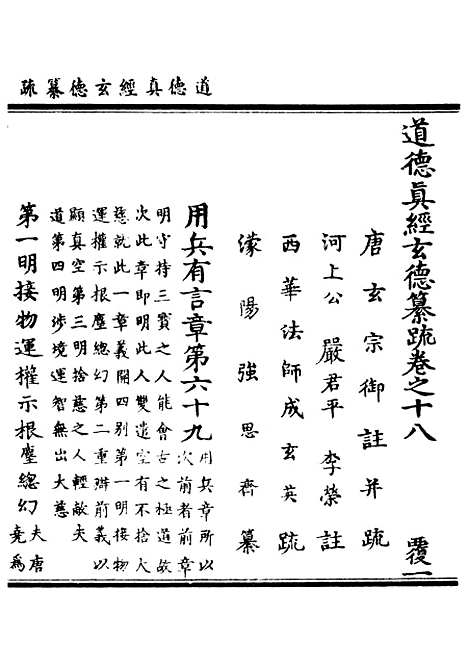 道德真經玄德纂疏
道德眞經玄德纂疏卷之十八 覆一
唐玄宗御註并疏
河上公 嚴君平 李榮 註
西華法師成玄英疏
濛陽強思齊纂
用兵有言章第六十九 用兵章所以
次前者前章
明守持三寶之人能會古之極道故
次此章即明此人雙遣空有不捨大
慈就此一章義開四別第一明接物
運權示根塵總幻第二重辯前義以
顯真空第三明捨慈之人輕敵夫
道第四明涉境運智無出大慈
第一明接物運權示根塵總幻 夫唐
堯為